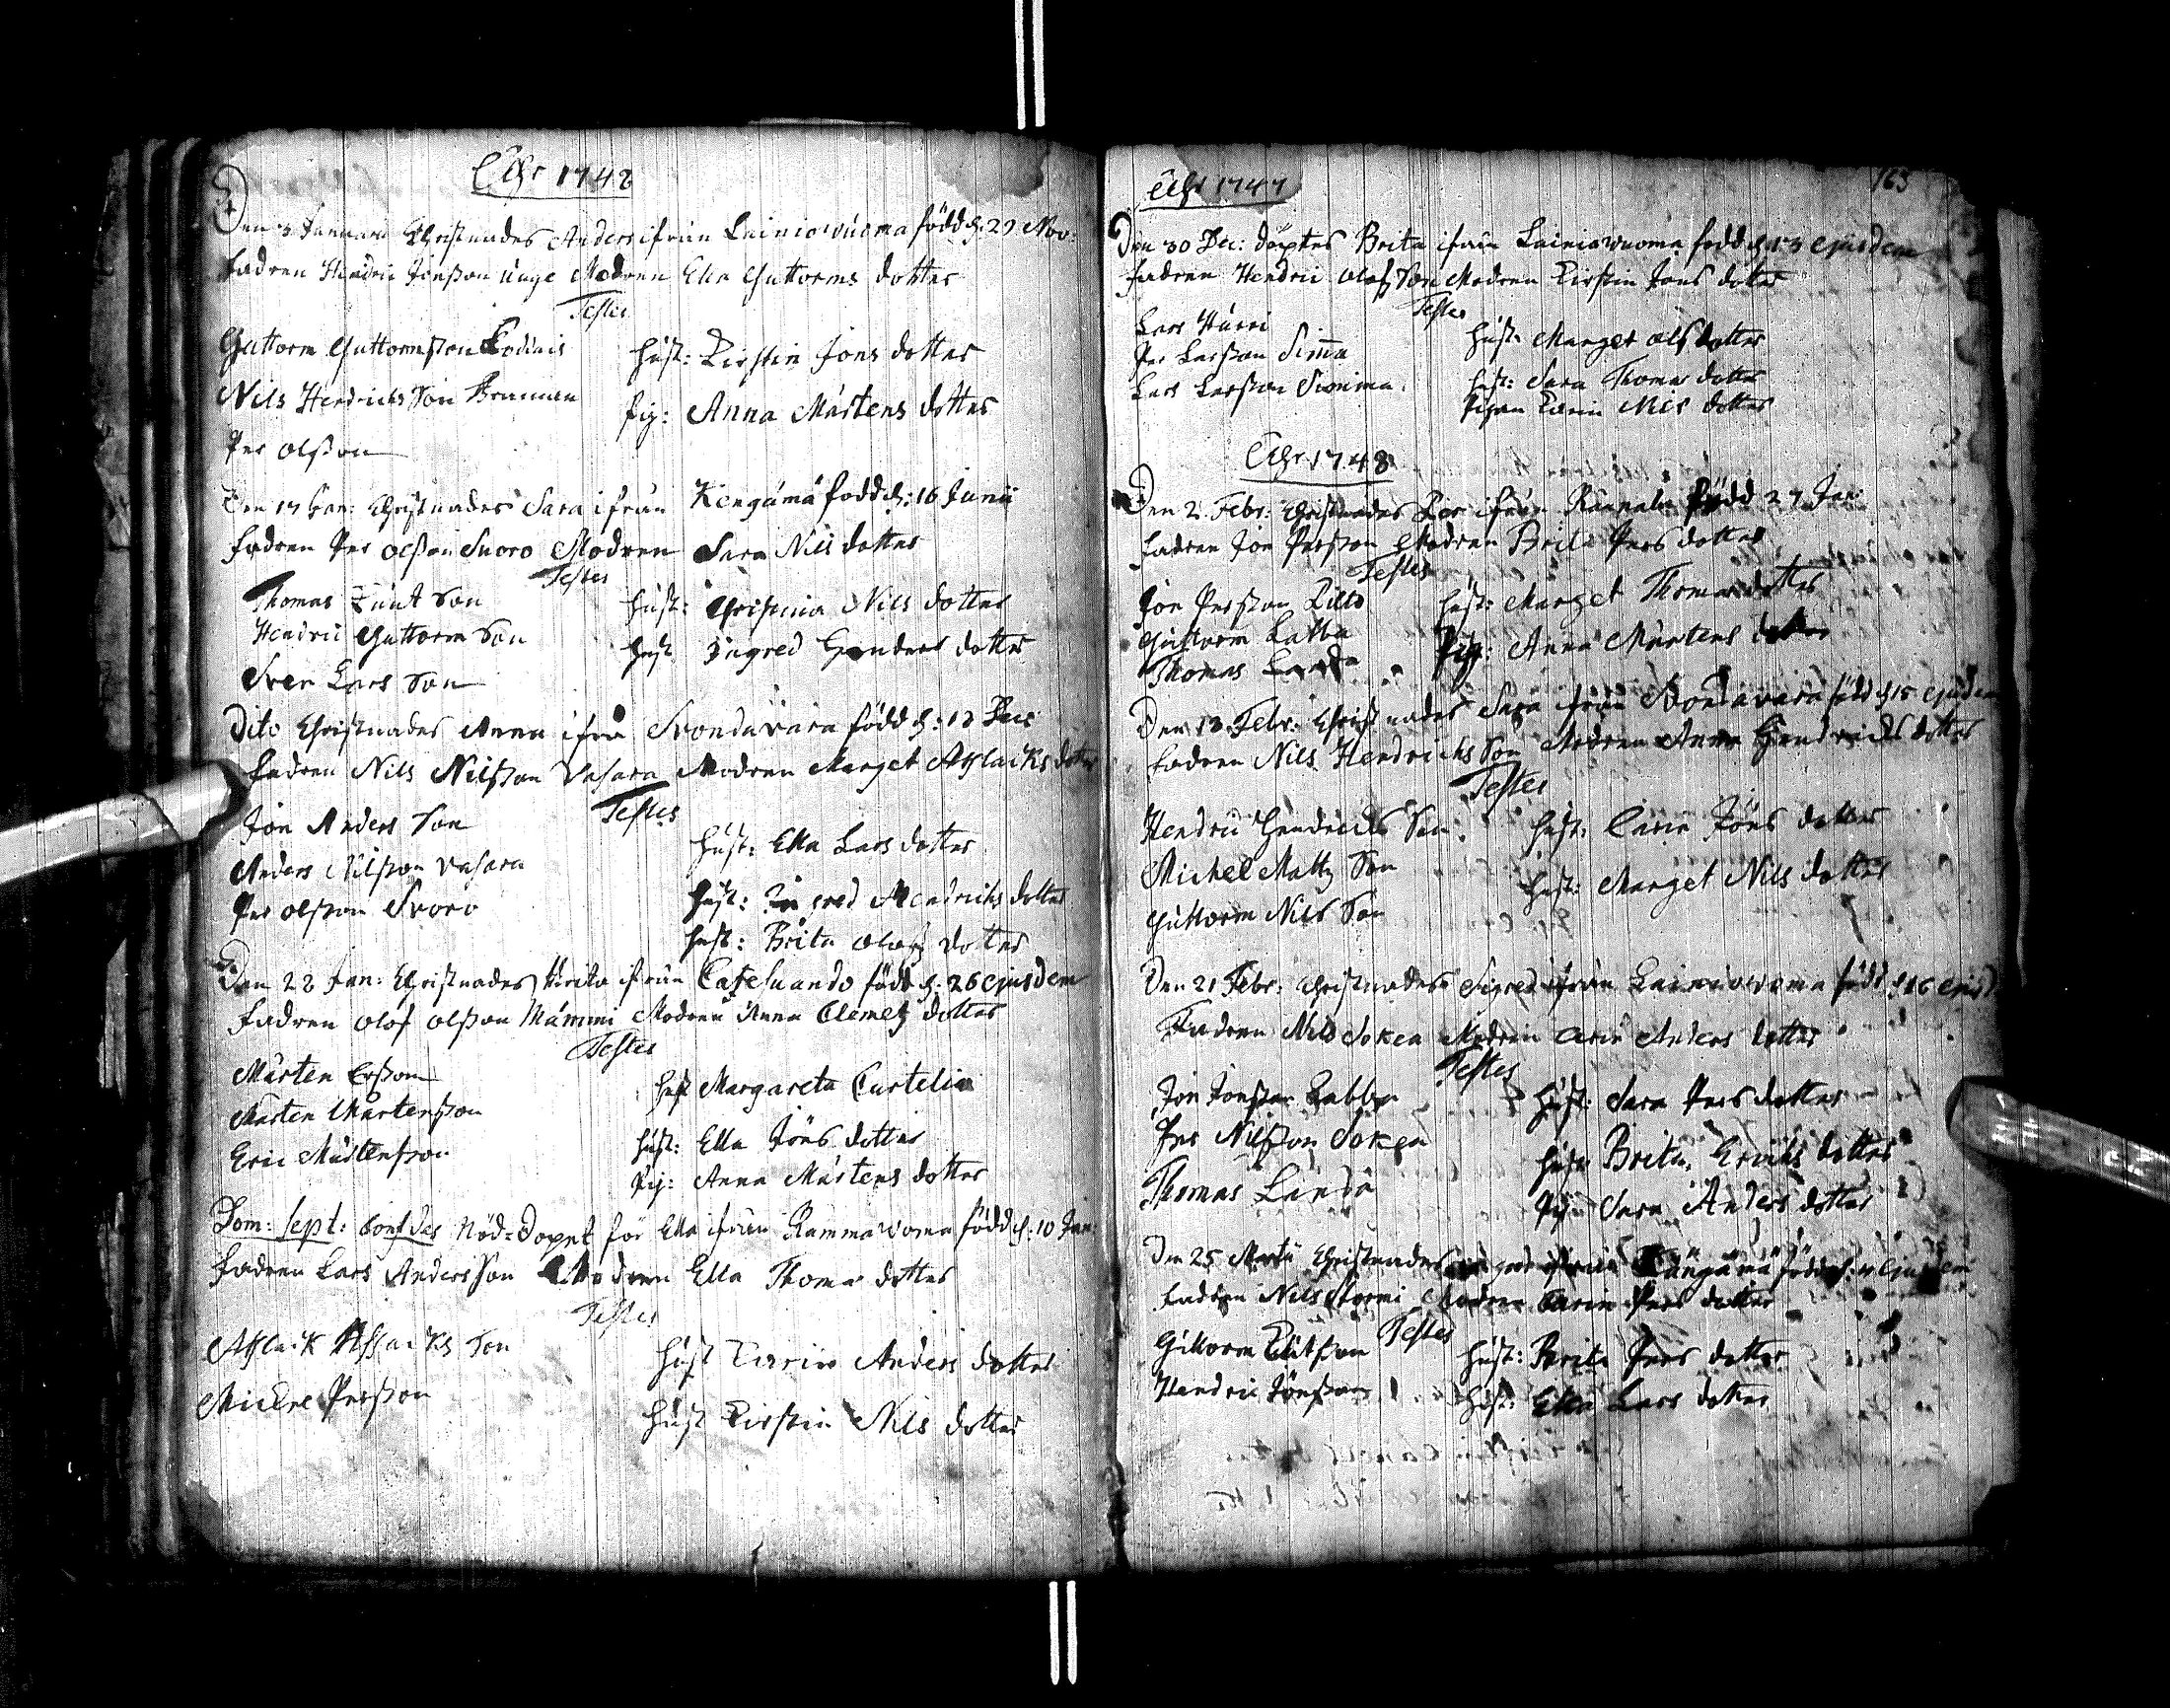 Åhr 1748
Den 3 Januarii Christnades Anders ifrån Lainiowuoma född d. 29 Nov:
Fadren Hendric Jonsson unge Modren Ella Guttorms dotter
Testes
Guttorm Guttormsson
Hust: Kirstin Jons dotter
Nils Hendrichs Son
Pig: Anna Mårtens dotter
Per Olsson
Den 17 Jan: Christnades Sara ifrån Kengämä född d: 16 Junii
Fadren Per Olsson Suoro Modren Sara Nils dotter
Testes
Thomas Son
Hust: Christina Nils dotter
Hendric Guttorm Son
Hust Ingred dotter
Sven Lars Son
Dito Christnades Anna ifrå Svondavara född d: 12 Dec
Fadren Nils Nilsson Vasara Modren Marget Aslacks dotter
Testes
Jon Anders Son
Hust: Ella Lars dotter
Anders Nilsson Vasara
Hust: Ingred Hendrichs dotter
Per Olsson Svoro
Hust: Brita Olofz dotter
Den 28 Jan: Christnades Brita ifrån Catesuando född d: 26 ejusdem
Fadren Olof Olsson Mämmi Modren Anna Clemetz dotter
Testes
Mårten Ersson
Hust Margareta Curtelia
Mårten Mårtensson
Hust: Ella Jöns dotter
Eric Mårtensson
Pig: Anna Mårtens dotter
Dom: sept: Nöd-Dopet för Ella ifrån Rammawoma född d: 10 Jan
Fadren Lars Anders Son Modren Ella Thoma dotter
Testes
Aslack Aslacks Son
Hust Karin Anders dotter
Mickel Persson
Hust Kirstin Nils dotter
163
Åhr 1747
Den 30 Dec: döptes Brita ifrån Lainiowuoma född d. 13 ejusdem
Fadren Hendric Olofs Son Modren Kirstin Jons dotter
Testes
Lars Hurri
Hust. Marget Ols dotter
Per Larsson Simma
Hust: Sara Thomas dotter
Lars Larsson Simma
Pigan Karin Nils dotter
Åhr 1748
Den 2 Febr: Christnades Per ifrån född 27 Jan
Fadren Jon Persson Modren Brita Pers dotter
Testes
Jon Persson
Hust: Marget Thomas dotter
Guttorm Labba
Pig: Anna Mårtens dotter
Thomas
Den 18 Febr: Christnades Sara ifrån Svondavara född d 15 ejusdem
Fadren Nils Hendrichs Son Modren Anna Hendrichs dotter
Testes
Hendric Hendrichs Son
Hust: Carin Jöns dotter
Michel Mattz Son
Hust: Marget Nils dotter
Guttorm Nils Son
Den 21 Febr: Christnades Sigred ifrån Lainiowoma född d 16 ejusd
Fadren Nils Soken Modren Carin Anders dotter
Testes
Jon Jonsson Labba
Hust: Sara Pers dotter
Per Nilsson Soken
Hust Brita Erichs dotter
Thomas Landa
Pig: Sara Anders dotter
Den 25 Martii Christnades ifrån Kängämä född d: ejusdem
Fadren Nils Stormi Modren Carin Pers dotter
Testes
Guttorm
Hust: Brita Pers dotter
Hendric Jönsson
Hust: Ella Lars dotter